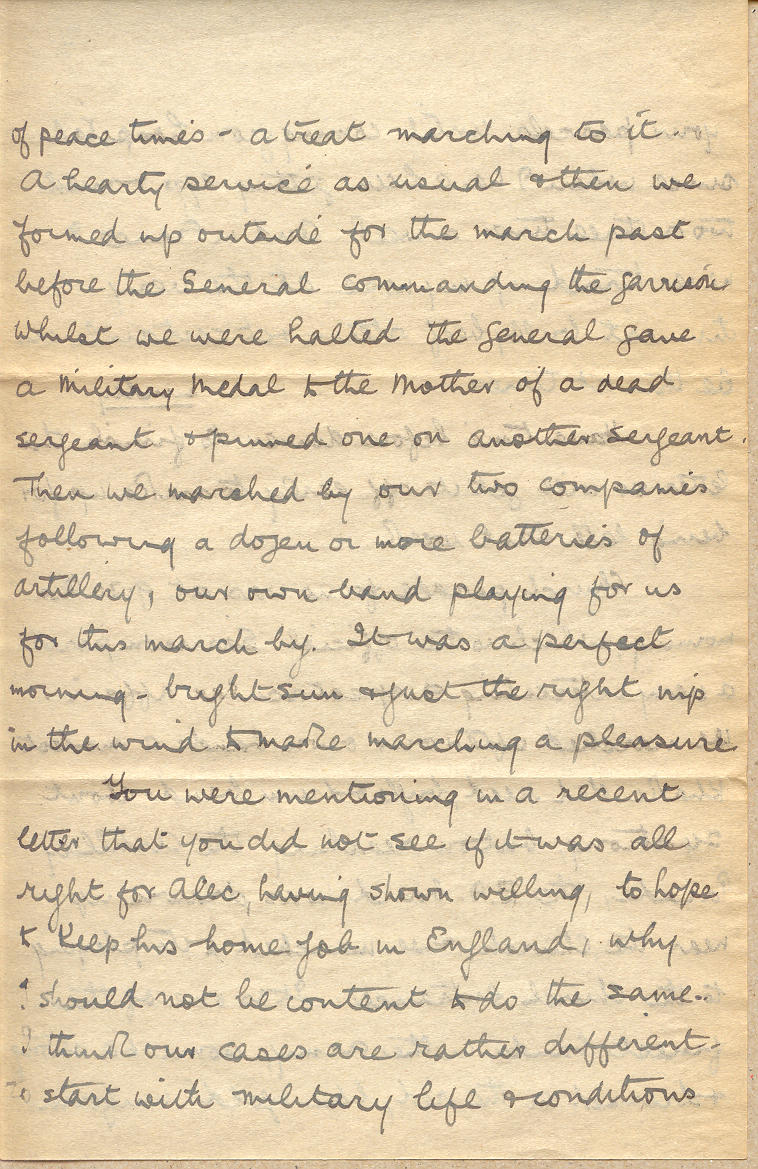 of peace times - a treat marching to it.
A hearty service as usual & then we
formed up outside for the march past
before the General commanding the garrison
whilst we were halted the General gave
a Military Medal to the Mother of a dead
sergeant & pinned one on another sergeant.
Then we marched by our two companies
following a dozen or more batteries of
artillery, our own band playing for us
for this march by. It was a perfect
morning - bright sun & just the right nip
in the wind to make marching a pleasure
You were mentioning in a recent
letter that you did not see if it was all
right for Alec, having shown willing, to hope
to keep his home job in England, why
I should not be content to do the same..
I think our cases are rather different -
To start with military life & conditions